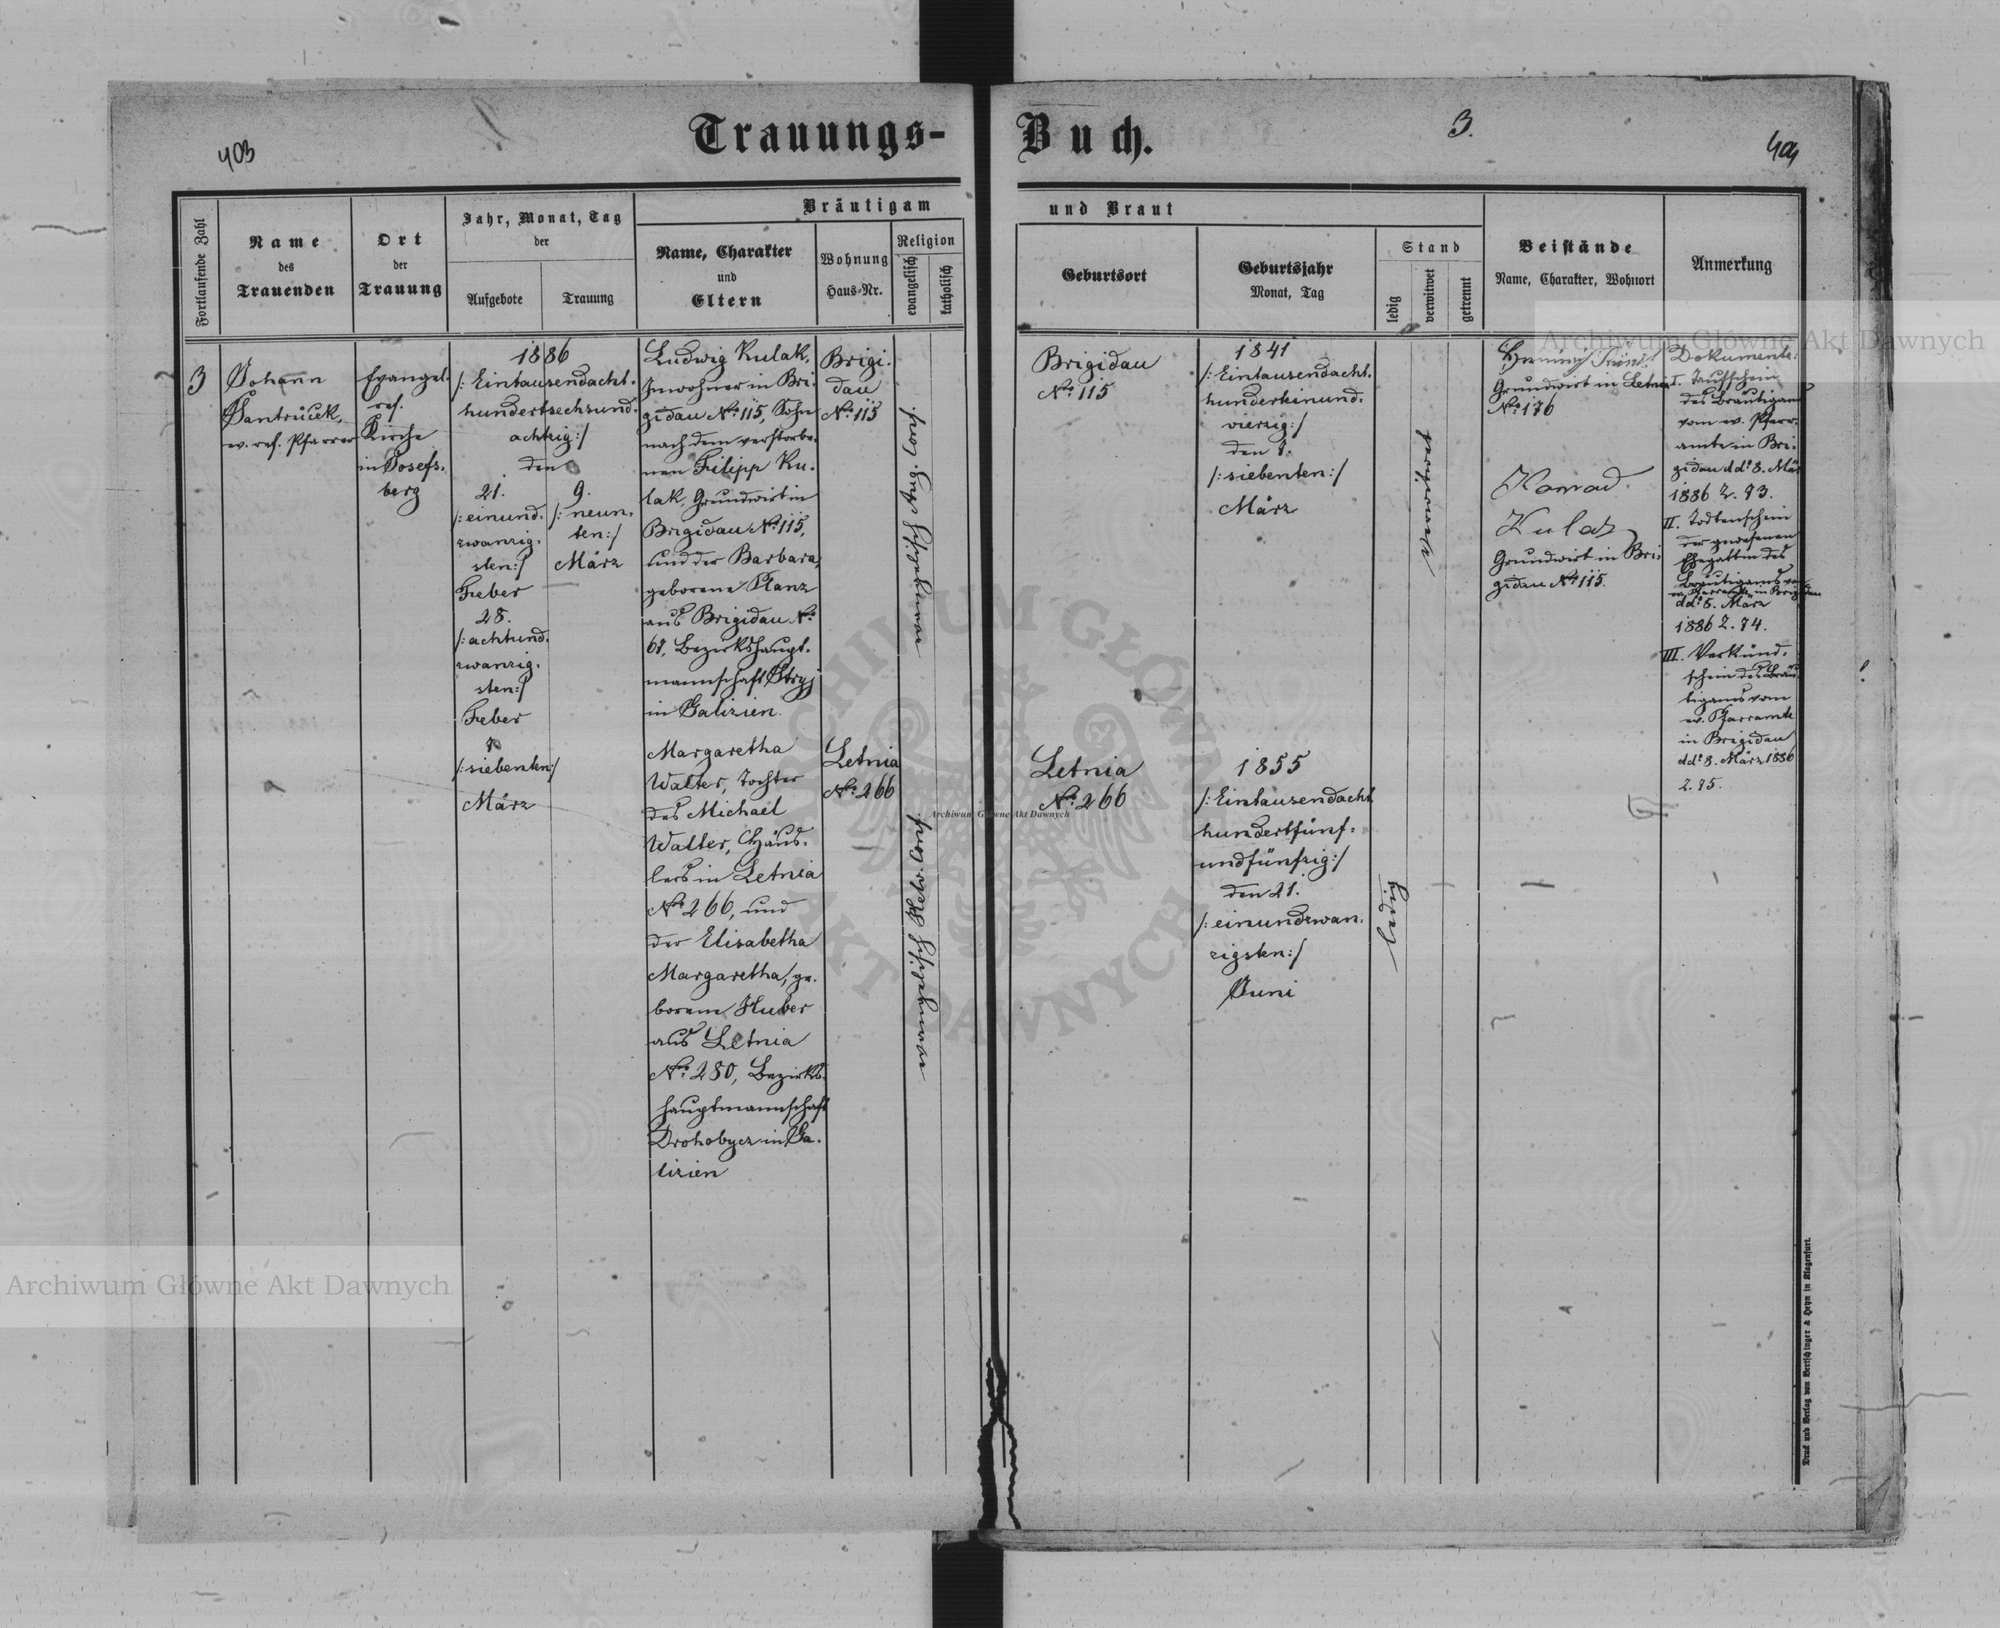 Trauungs-
Buch.
403
3.
404
Fortlaufende Zahl
Name
des
Trauenden
Ort
der
Trauung
Jahr, Monat, Tag
der
Aufgebote
Trauung
Bräutigam
Name, Charakter
und
Eltern
Wohnung
Haus-Nr.
Religion
evangelisch
katholisch
und Braut
Geburtsort
Geburtsjahr
Monat, Tag
Stand
ledig
verwitwet
getrennt
Beistände
Name, Charakter, Wohnort
Anmerkung
3
Johann
Santrůček,
ev. ref. Pfarrer
Evangel.
ref.
Kirche
in Josefs-
berg
1886
/: Eintausendacht-
hundertsechsund-
achtzig :/
den
21.
/: einund-
zwanzig-
sten :/
Feber
28.
/: achtund-
zwanzig-
sten :/
Feber
7.
/: siebenten :/
März
9.
/: neun-
ten :/
März
Ludwig Kulak,
Inwohner in Bri-
gidau No. 115, Sohn
nach dem verstorbe-
nen Filipp Ku-
lak, Grundwirt in
Brigidau No. 115,
und der Barbara,
geborene Planz
aus Brigidau No.
61, Bezirkshaupt-
mannschaft Stryj
in Galizien.
Brigi-
dau
No. 115
evang. helvet. Conf.
Brigidau
No. 115
1841
/: Eintausendacht-
hunderteinund-
vierzig :/
den 7.
/: siebenten :/
März
Grundwirt in Letnia
No. 176
Konrad
Kulak
Grundwirt in Bri-
gidau No. 115.
Dokumente:
I. Taufschein
des Bräutigams
vom ev. Pfarr-
amte in Bri-
gidau ddo. 8. März
1886 Z. 73.
II. Todtenschein
der gewesenen
Ehegattin des
Bräutigams vom
ev. Pfarramte in Brigidau
ddo. 8. März
1886 Z. 74.
III. Verkünd-
schein des Bräu-
tigams vom
ev. Pfarramte
in Brigidau
ddo. 8. März 1886
Z. 75.
Margaretha
Walter, Tochter
des Michael
Walter, Häus-
lers in Letnia
No. 266, und
der Elisabetha
Margaretha, ge-
borene Huber
aus Letnia
No. 280, Bezirks-
hauptmannschaft
Drohobycz in Ga-
lizien
Letnia
No. 266
Letnia
No. 266
1855
/: Eintausendacht
hundertfünf-
undfünfzig :/
den 21.
/: einundzwan-
zigsten :/
Juni
ledig
Druck und Verlag von Bertschinger & Heyn in Klagenfurt.
Archiwum Główne Akt Dawnych
Archiwum Główne Akt Dawnych
Archiwum Główne Akt Dawnych
ARCHIWUM GŁÓWNE AKT DAWNYCH